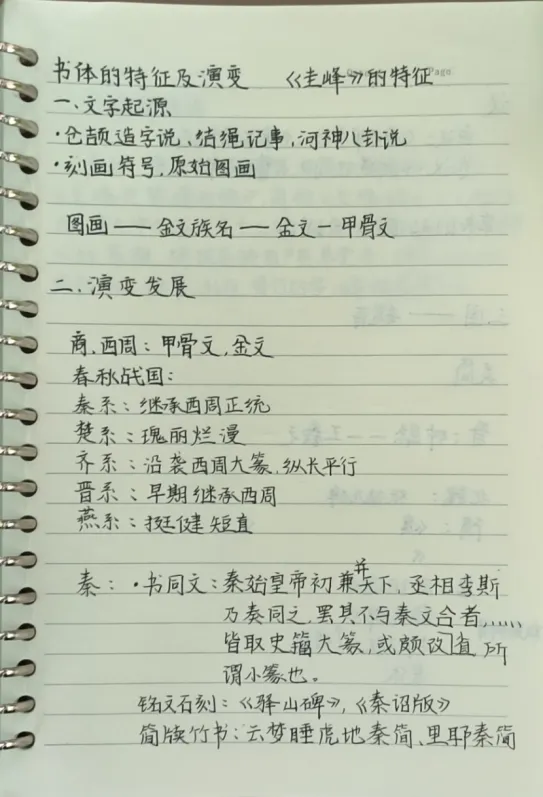 书体的特征及演变 《圭峰》的特征 Page
一、文字起源
·仓颉造字说、结绳记事,河神八卦说
·刻画符号,原始图画
图画——金文族名——金文—甲骨文
二、演变发展
商、西周:甲骨文,金文
春秋战国:
秦系:继承西周正统
楚系:瑰丽烂漫
齐系:沿袭西周大篆,纵长平行
晋系:早期继承西周
燕系:挺健短直
秦:·书同文:秦始皇帝初兼并天下,丞相李斯
乃奏同之,罢其不与秦文合者,……
皆取史籀大篆,或颇改直,所
谓小篆也。
铭文石刻:《驿山碑》,《秦诏版》
简牍竹书:云梦睡虎地秦简、里耶秦简